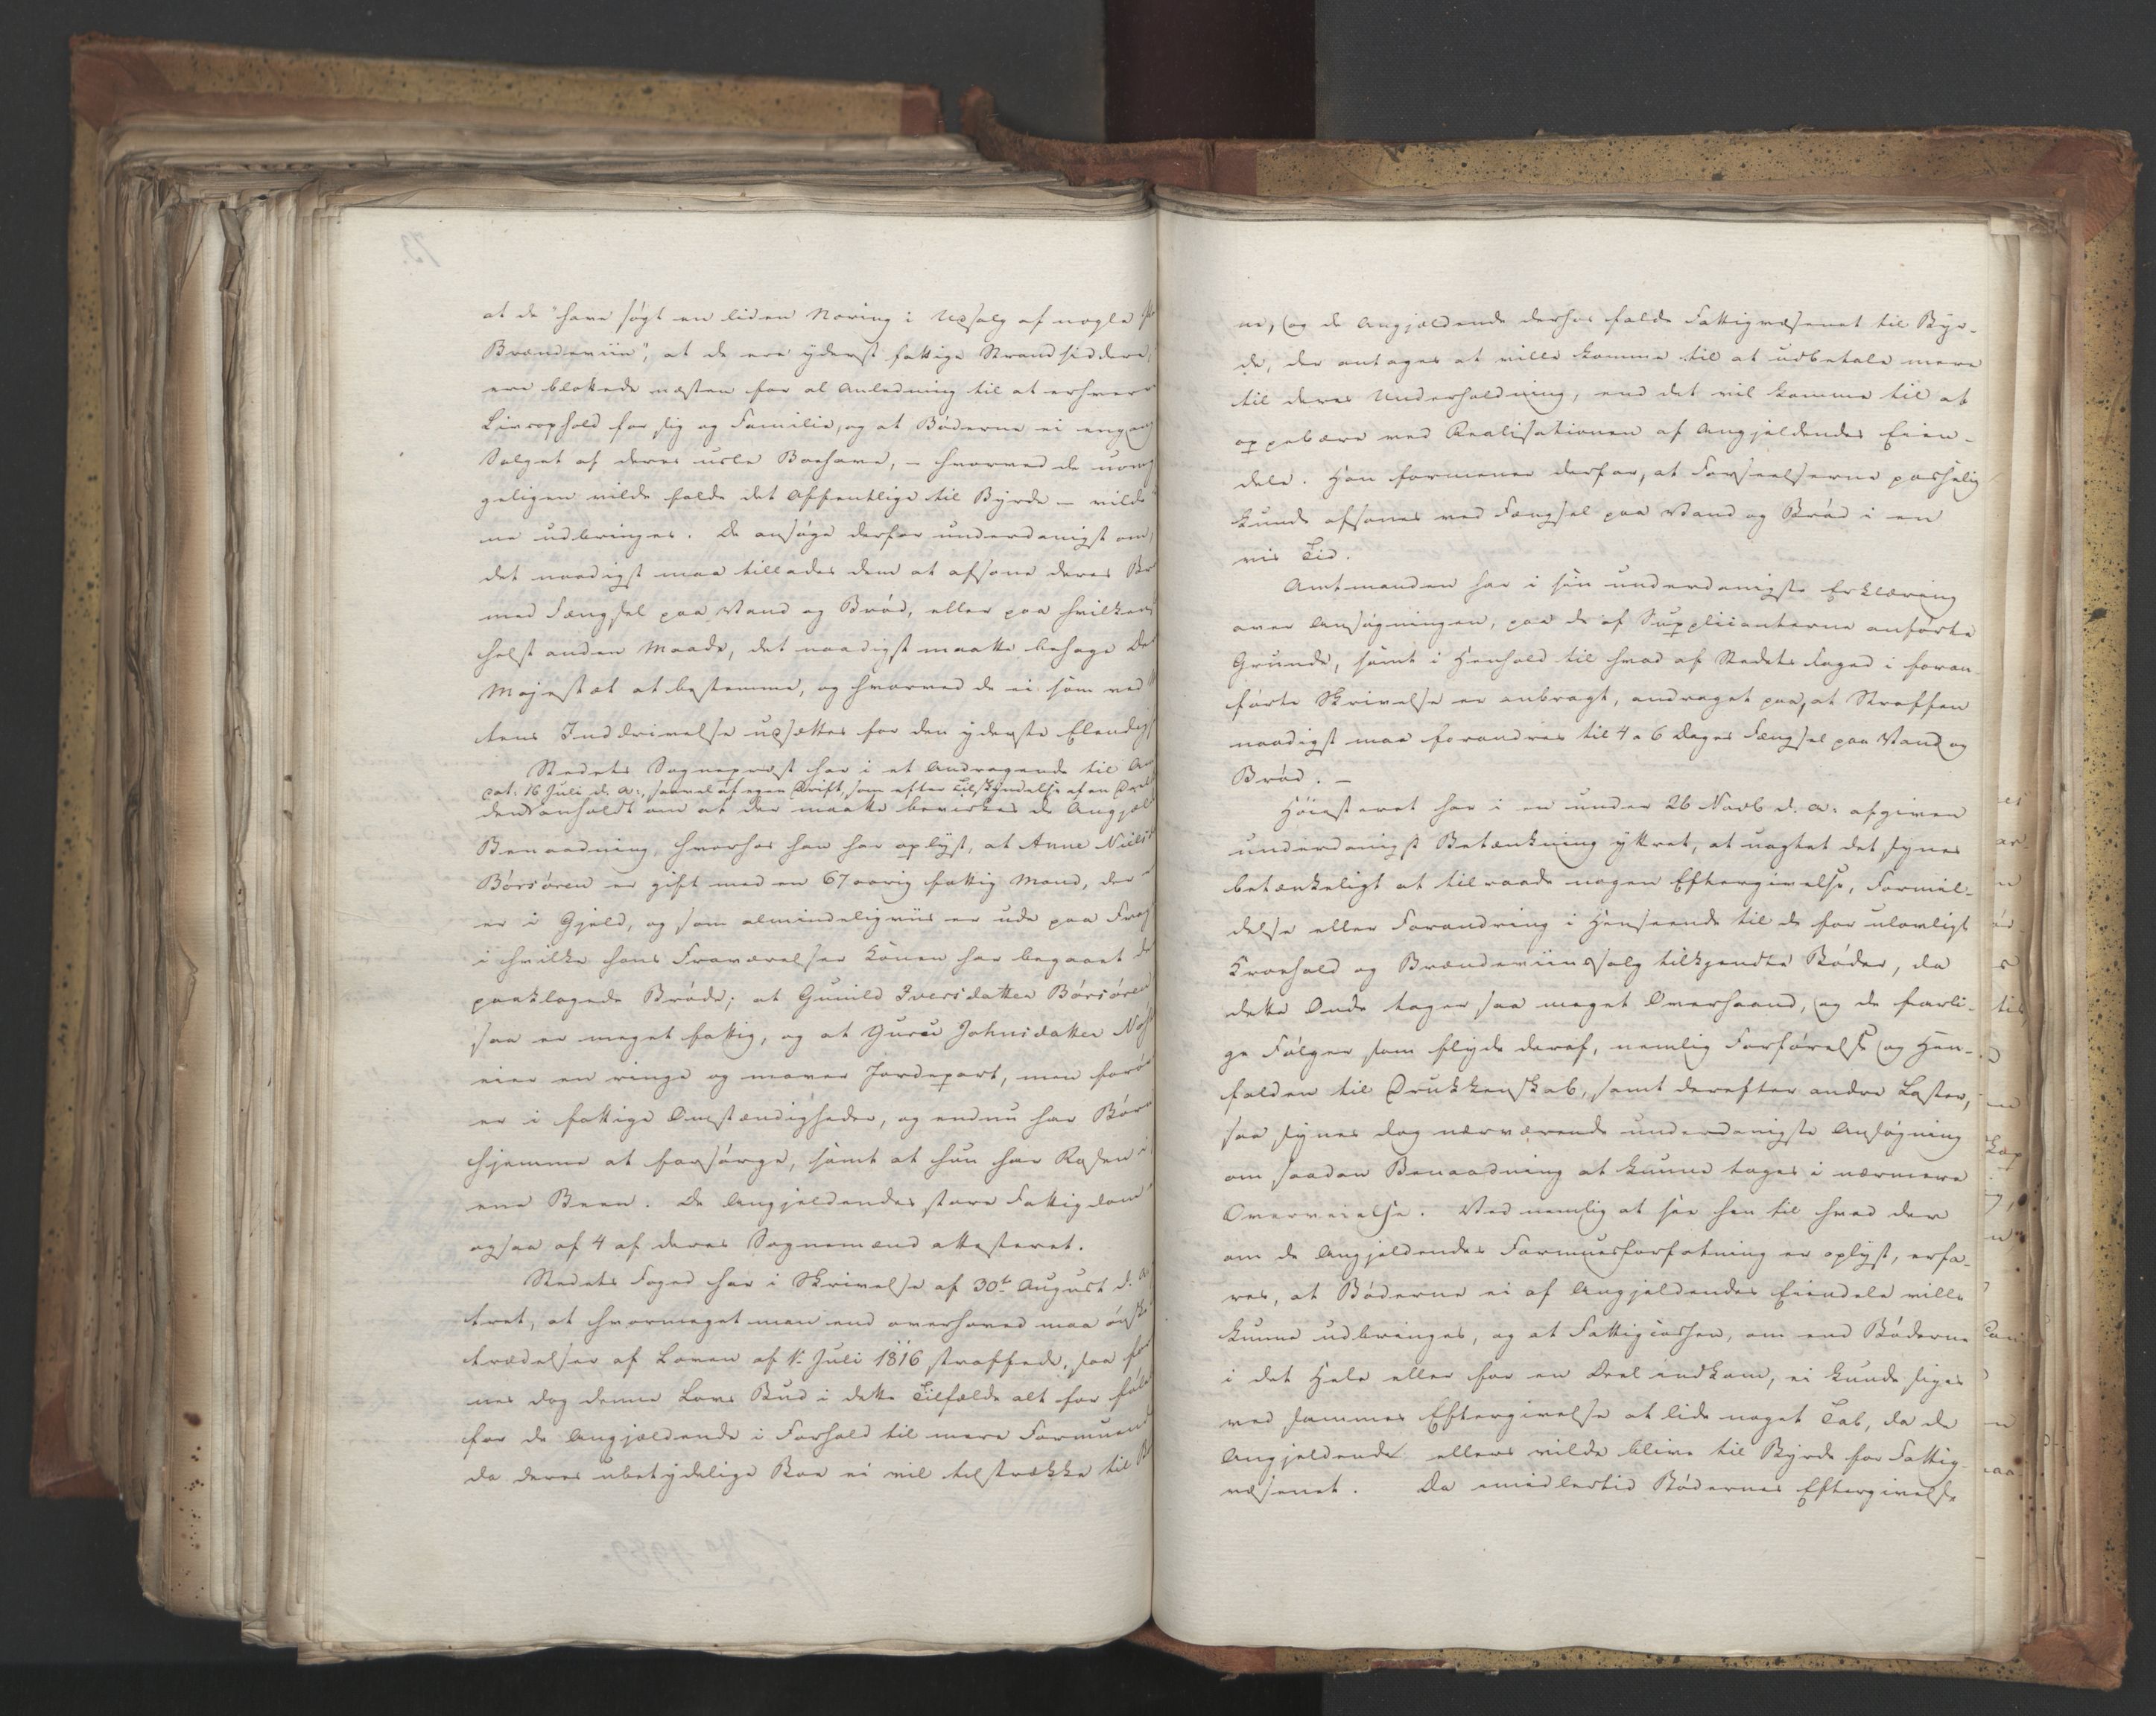 at de "have søgt en liden Næring i Udsalg af nogle
Brændeviin", at de ere yderst fattige Strandsiddere,
ere blottede næsten for al Anledning til at erhver
Livsophold for sig og Familie, og at Bøderne ei engang
Salget af deres usle Boehave, – hvorved de uomg
geligen vilde falde det Offentlige til Byrde – vilde
ne udbringes. De ansøge derfor underdanigst om,
det naadigst maa tillades dem at afsone deres
med Fængsel paa Vand og Brød, eller paa hvilken
helst anden Maade, det naadigst maatte behage De
Majestæt at bestemme, og hvorved de ei som ved
tens Inddrivelse udsættes for den yderste Elendig
Stedets Sognepræst har i et Andragende til Am
dat. 16 Juli d. A., saavel af egen Drift, som efter Tilskyndelse af en Deel
den anholdt om at der maatte bevirkes de Angjæld
Benaadning, hvorhos han har oplyst, at Anne Niels
Børsøren er gift med en 67 aarig fattig Mand, der
er i Gjæld, og som almindeligviis er ude paa
i hvilke hans Fraværelser Konen har begaaet de
paaklagede Brøde; at Gunild Iversdatter Børsøren
saa er meget fattig, og at Guru Johnsdatter
eier en ringe og maver Jordepart, men forø
er i fattige Omstændigheder, og endnu har Børn
hjemme at forsørge, samt at hun har Rosen i
ene Been. De Angjeldendes store Fattigdom
ogsaa af 4 af deres Sognemænd attesteret.
Stedets Foged har i Skrivelse af 30te August d. A.
tret, at hvormeget man end overhoved maa ønske
trædelser af Loven af 1. Juli 1816 straffede, saa
nes dog denne Lovs Bud i dette Tilfælde alt for
for de Angjældende i Forhold til mere Formuend
da deres ubetydelige Boe ei vil tilstrække til
ne, og de Angjældende derhos falde Fattigvæsenet til Byr-
de, der antages at ville komme til at udbetale mere
til deres Underholdning, end det vil komme til at
oppebære ved Realisationen af Angjeldendes Eien-
dele. Han formener derfor, at Forseelserne passelig
kunde afsones ved Fængsel paa Vand og Brød i en
vis Tid.
Amtmanden har i sin underdanigste Erklæring
over Ansøgningen, paa de af Supplicanterne anførte
Grunde, samt i Henhold til hvad af Stedets Foged i foran-
førte Skrivelse er anbragt, andraget paa, at Straffen
naadigst maa forandres til 4 a 6 Dages Fængsel paa Vand og
Brød. –
Høiesteret har i en under 26 Novb. d. A. afgiven
underdanigst Betænkning yttret, at uagtet det synes
betænkeligt at tilraade nogen Eftergivelse, Formil-
delse eller Forandring i Henseende til de for ulovligt
Kroehold og Brændeviinssalg tilkjendte Bøder, da
dette Onde tager saa meget Overhaand, og de farli-
ge Følger som flyde deraf, nemlig Forførelse og Hen-
falden til Drukkenskab, samt derefter andre Laster,
saa synes dog nærværende underdanigste Ansøgning
om saadan Benaadning at kunne tages i nærmere
Overveielse. Ved nemlig at see hen til hvad der
om de Angjeldendes Formuesforfatning er oplyst, erfa-
res, at Bøderne ei af Angjeldendes Eiendele ville
kunne udbringes, og at Fattigcassen, om end Bøderne
i det Hele eller for en Deel indkom, ei kunde siges
ved sammes Eftergivelse at lide noget Tab, da de
Angjeldende ellers vilde blive til Byrde for Fattig-
væsenet. Da imidlertid Bødernes Eftergivelse